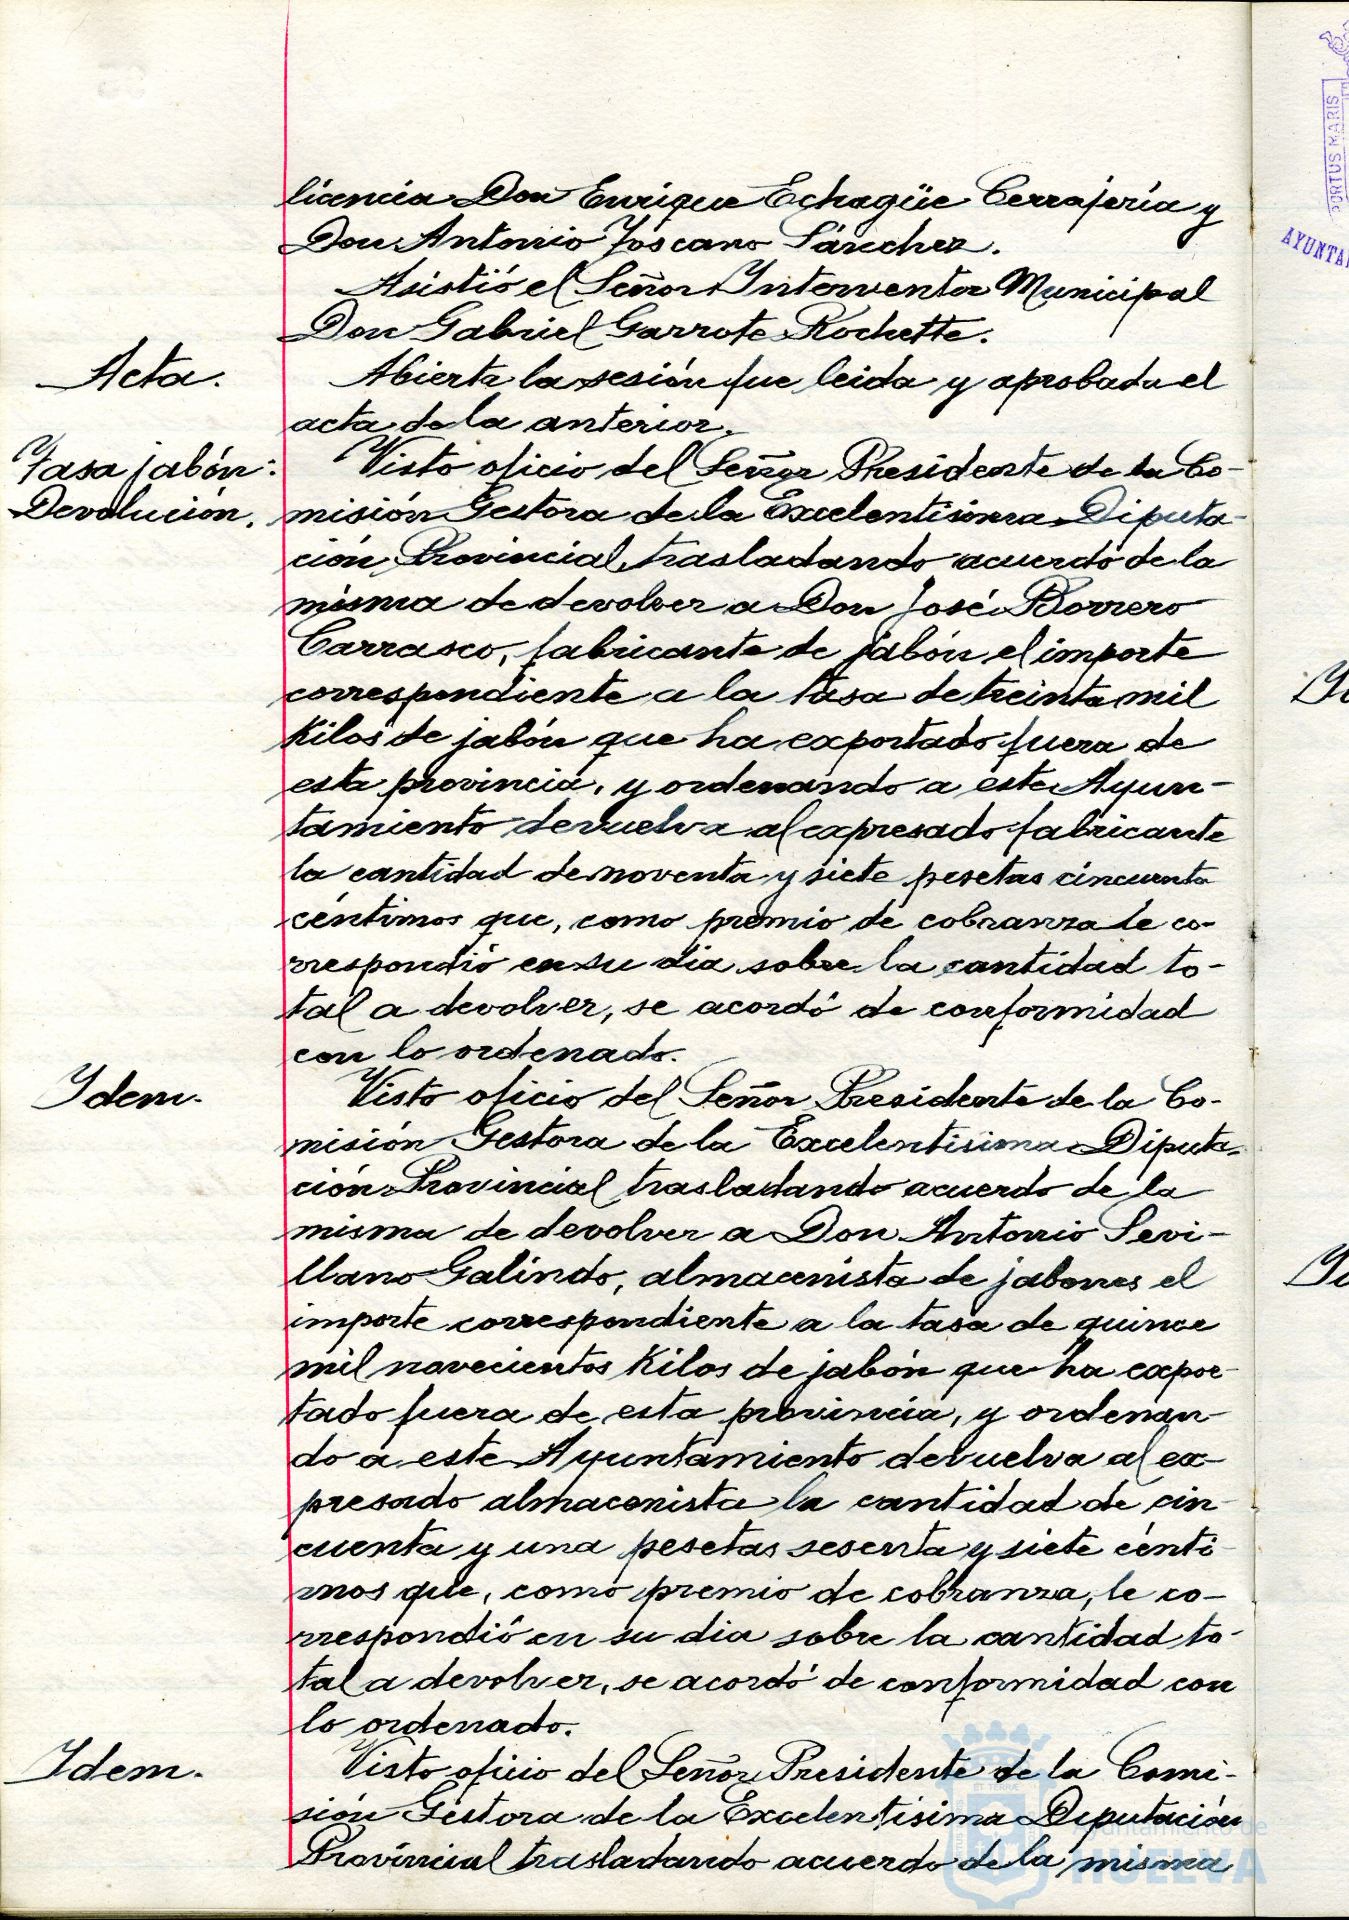 licencia Don Enrique Echagüe Cerrajería y
Don Antonio Toscano Sánchez.
Asistió el Señor Interventor Municipal
Don Gabriel Garrote Rochette.
Acta.
Abierta la sesión fue leida y aprobada el
acta de la anterior.
Tasa jabón:
Devolución.
Visto oficio del Señor Presidente de la Co-
misión Gestora de la Excelentisima Diputa-
ción Provincial trasladando acuerdo de la
misma de devolver a Don José Borrero
Carrasco, fabricante de jabón el importe
correspondiente a la tasa de treinta mil
Kilos de jabón que ha exportado fuera de
esta provincia, y ordenando a este Ayun-
tamiento devuelva al expresado fabricante
la cantidad de noventa y siete pesetas cincuenta
céntimos que, como premio de cobranza le co-
rrespondió en su dia sobre la cantidad to-
tal a devolver, se acordó de conformidad
con lo ordenado.
Idem.
Visto oficio del Señor Presidente de la Co-
misión Gestora de la Excelentisima Diputa-
ción Provincial trasladando acuerdo de la
misma de devolver a Don Antonio Sevi-
llano Galindo, almacenista de jabones el
importe correspondiente a la tasa de quince
mil novecientos Kilos de jabón que ha expor-
tado fuera de esta provincia, y ordenan-
do a este Ayuntamiento devuelva al ex-
presado almacenista la cantidad de cin-
cuenta y una pesetas sesenta y siete cénti-
mos que, como premio de cobranza, le co-
rrespondió en su dia sobre la cantidad to-
tal a devolver, se acordó de conformidad con
lo ordenado.
Idem.
Visto oficio del Señor Presidente de la Comi-
sión Gestora de la Excelentisima Diputación
Provincial trasladando acuerdo de la misma
Ayuntamiento de
HUELVA
PORTUS MARIS
AYUNTA